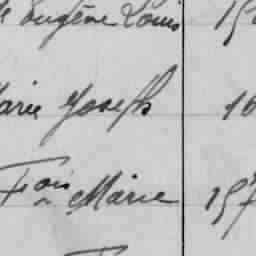 Eugène Louis 15
Marie Joseph 16
Fçois Marie 157